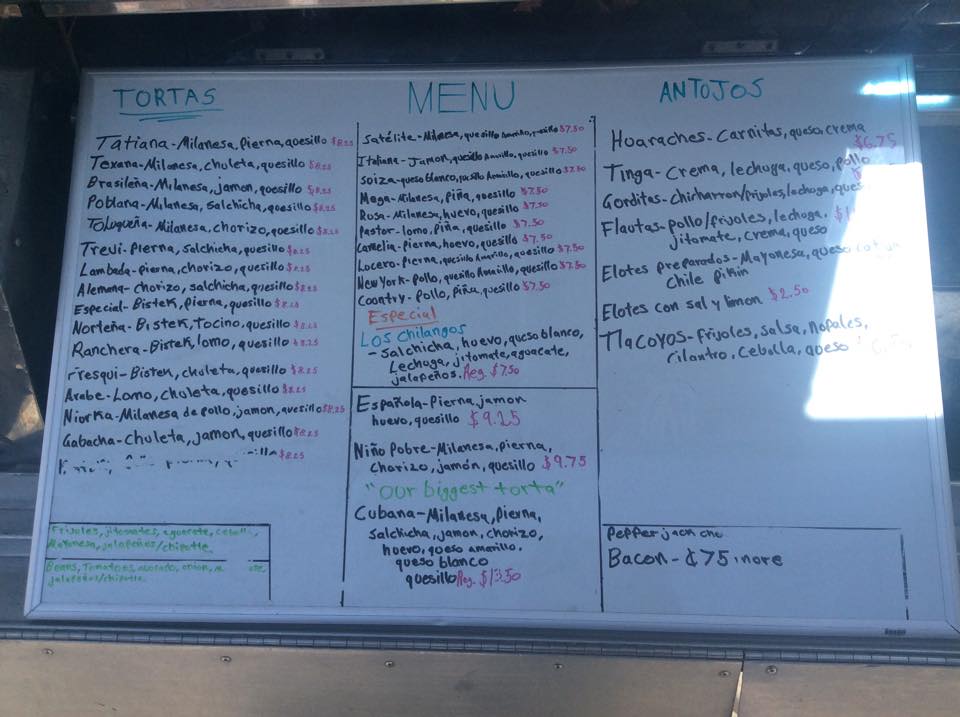 TORTAS
Tatiana-Milanesa, pierna, quesillo $8.25
Texana-Milanesa, chuleta, quesillo $8.25
Brasileña-Milanesa, jamon, quesillo $8.25
Poblana-Milanesa, salchicha, quesillo $8.25
Toluqueña-Milanesa, chorizo, quesillo $8.25
Trevi-Pierna, salchicha, quesillo $8.25
Lambada-pierna, chorizo, quesillo $8.25
Alemana-chorizo, salchicha, quesillo $8.25
Especial-Bistek, pierna, quesillo $8.25
Norteña-Bistek, Tocino, quesillo $8.25
Ranchera-Bistek, lomo, quesillo $8.25
Fresqui-Bistek, chuleta, quesillo $8.25
Arabe-Lomo, chuleta, quesillo $8.25
Niurka-Milanesa de pollo, jamon, quesillo $8.25
Gabacha-Chuleta, jamon, quesillo $8.25
$8.25
Frijoles, jitomates, aguacate,
Mayonesa, jalapeños/chipotle
Beans, Tomatoes, avocado, onion,
jalapeños/chipotle
MENU
Satélite-Milanesa, quesillo Amarillo, quesillo $7.50
Italiana-Jamon, quesillo Amarillo, quesillo $7.50
Soiza-queso blanco, quesillo Amarillo, quesillo $7.50
Mega-Milanesa, Piña, quesillo $7.50
Rosa-Milanesa, huevo, quesillo $7.50
Pastor-lomo, piña, quesillo $7.50
Camelia-pierna, huevo, quesillo $7.50
Locero-Pierna, quesillo Amarillo, quesillo $7.50
New York-Pollo, quesillo Amarillo, quesillo $7.50
Coontry-Pollo, piña, quesillo $7.50
Especial
Los Chilangos
-Salchicha, huevo, queso blanco,
Lechuga, jitomate, aguacate,
jalapeños. Reg. $7.50
Española-Pierna, jamon
huevo, quesillo $9.25
Niño Pobre-Milanesa, pierna,
chorizo, jamón, quesillo $9.75
"Our biggest torta"
Cubana-Milanesa, pierna,
Salchicha, jamon, chorizo,
huevo, queso amarillo,
queso blanco
quesillo Reg. $13.50
ANTOJOS
Huaraches-Carnitas, queso, crema
$6.75
Tinga-Crema, lechuga, queso, pollo
Gorditas-Chicharron/frijoles, lechuga,
Flautas-pollo/frijoles, lechuga,
jitomate, crema, queso
Elotes preparados-Mayonesa, queso
Chile pikin
Elotes con sal y limon $2.50
Tlacoyos-frijoles, salsa, nopales,
cilantro, Cebolla, queso
Pepper jack
Bacon-¢75 more